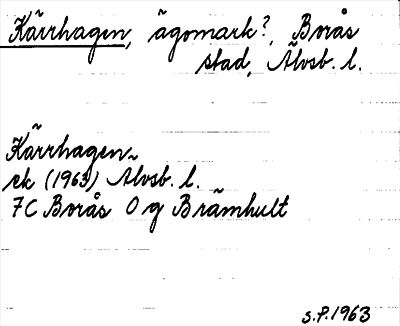 Kärrhagen, ägomark?, Borås
stad, Älvsb. l.
Kärrhagen
ek (1963) Älvsb. l.
7C Borås O g Brämhult
S.P. 1963